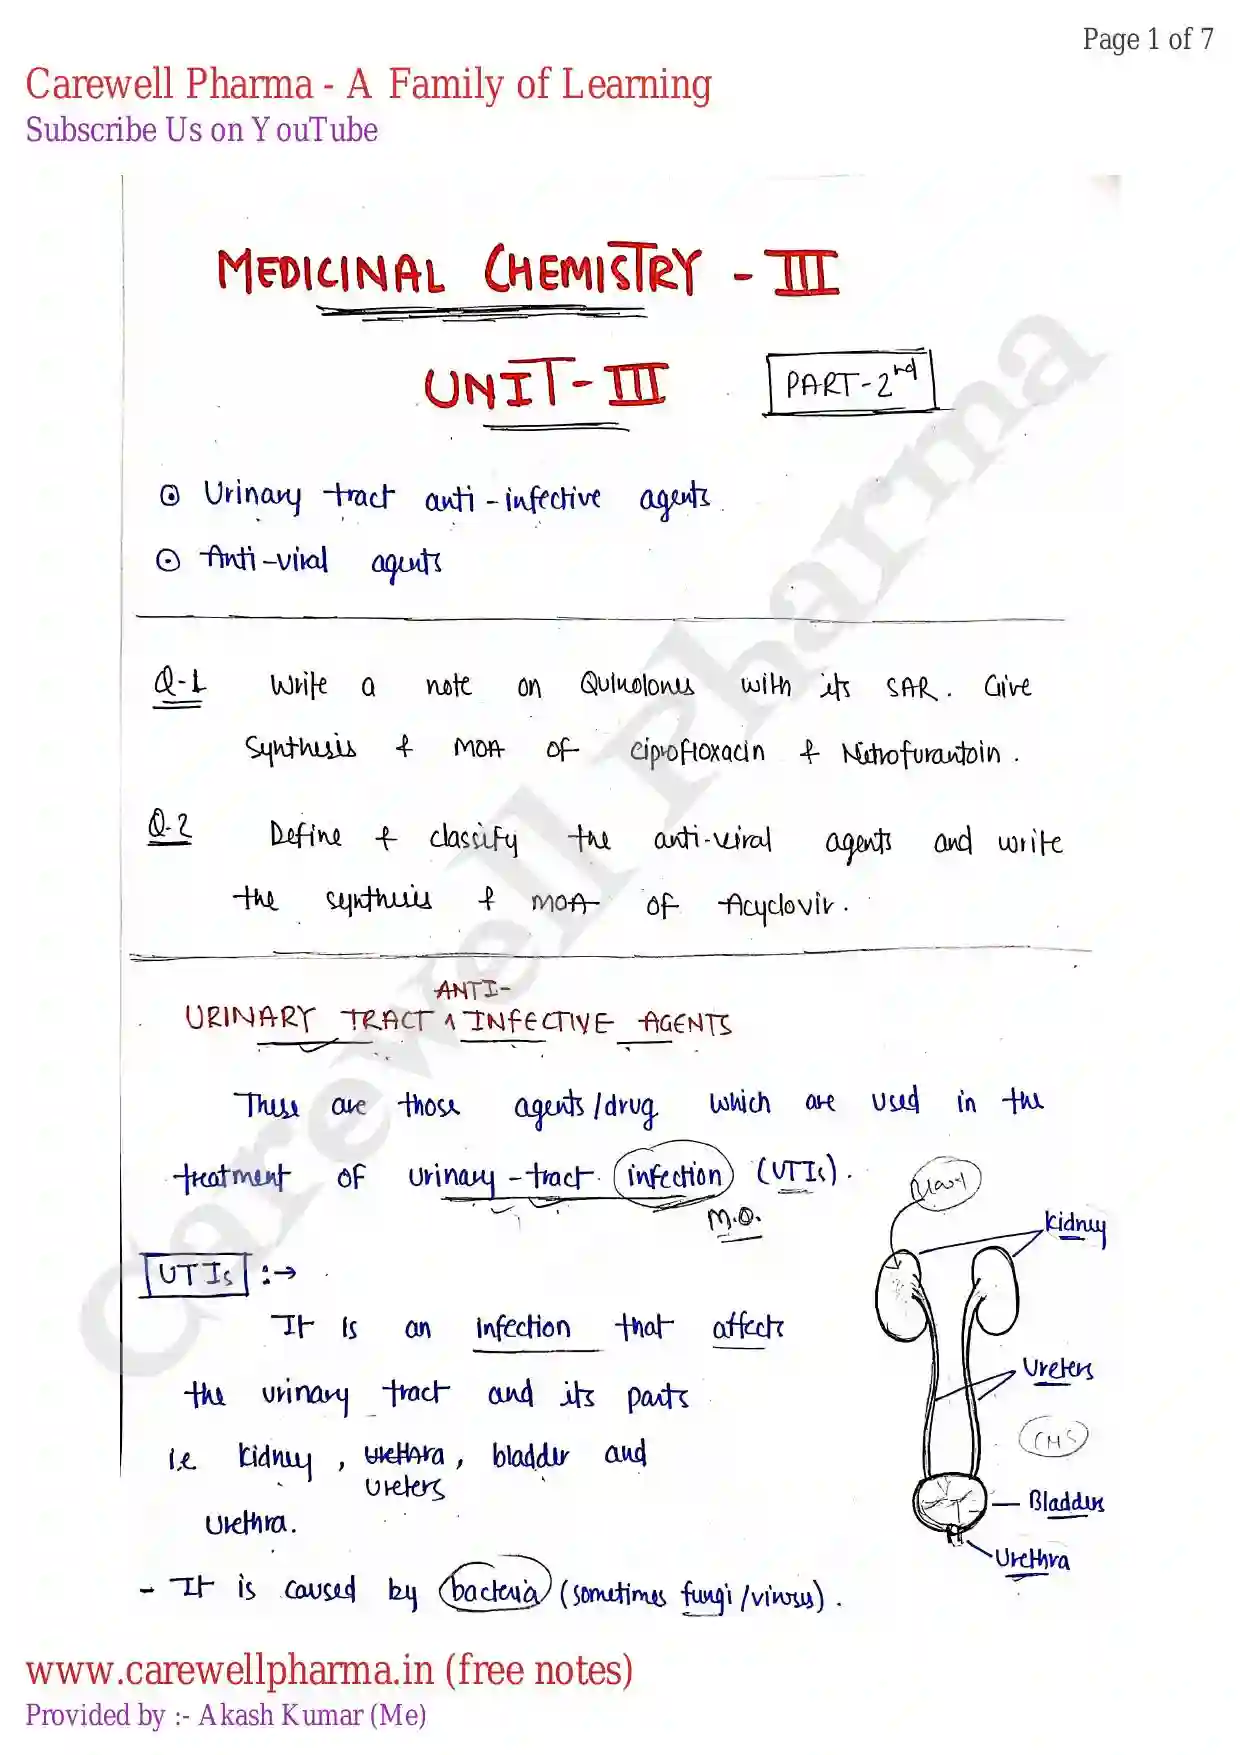 Page 1 of 7
Carewell Pharma - A Family of Learning
Subscribe Us on YouTube
MEDICINAL CHEMISTRY - III
UNIT - III
PART-2nd
Urinary tract anti-infective agents.
Anti-viral agents
Q-1 Write a note on Quinolones with its SAR. Give
Synthesis & MOA of ciprofloxacin & Nitrofurantoin.
Q-2 Define & classify the anti-viral agents and write
the synthesis & MOA of Acyclovir.
ANTI-
URINARY TRACT ^ INFECTIVE AGENTS
These are those agents/drug which are used in the
treatment of urinary-tract infection (UTIs).
M.O.
Kidney
UTIs :→
It is an infection that affects
the urinary tract and its parts
Ureters
i.e kidney, urethra, bladder and
ureters
urethra.
Bladder
Urethra
- It is caused by bacteria (sometimes fungi/viruses).
www.carewellpharma.in (free notes)
Provided by :- Akash Kumar (Me)
Carewell Pharma